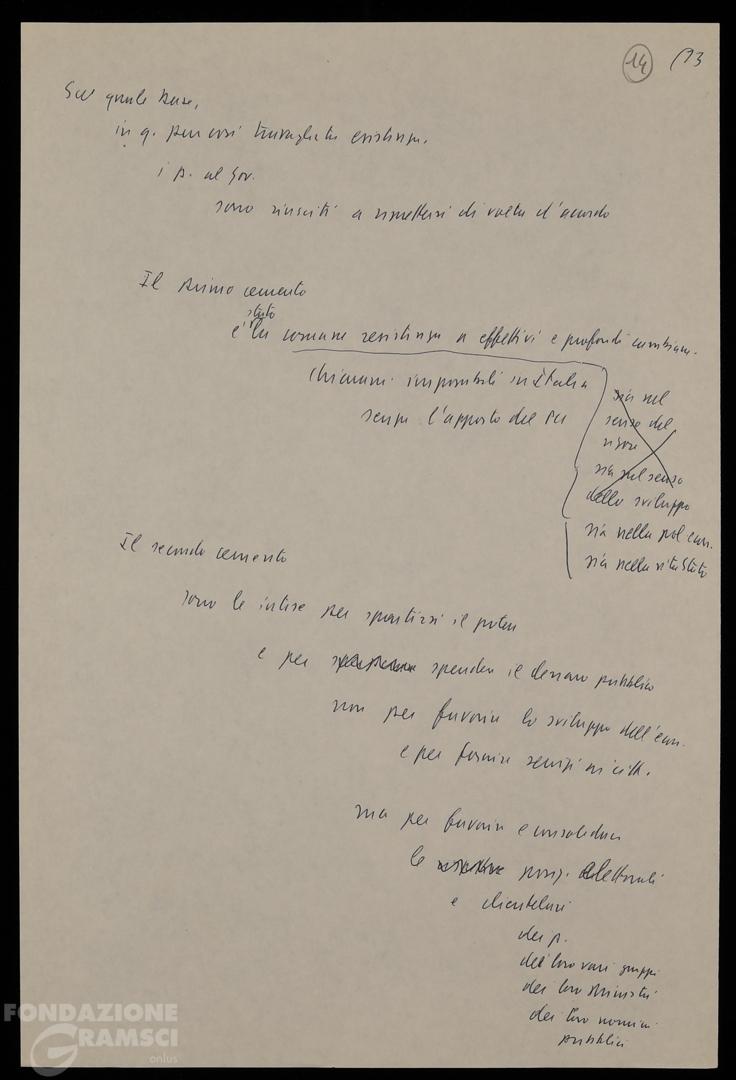 14 (13
Su quale base,
in q. pur così travagliata esistenza.
i p. al gov.
sono riusciti a rimettersi di volta d'accordo
Il primo cemento
stato
è la comune resistenza a effettivi e profondi cambiam.
chiaram. impossibili in Italia
senza l'apporto del PCI
sia nel
senso del
rigore
sia nel senso
dello sviluppo
sia nella pol econ.
sia nella vita Stato
Il secondo cemento
sono le intese per spartirsi il potere
e per spendere il denaro pubblico
non per favorire lo sviluppo dell'econ.
e per fornire servizi ai citt.
ma per favorire e consolidare
le posiz. elettorali
e clientelari
dei p.
dei loro vari gruppi
dei loro Ministri
dei loro uomini
pubblici
FONDAZIONE
GRAMSCI
onlus